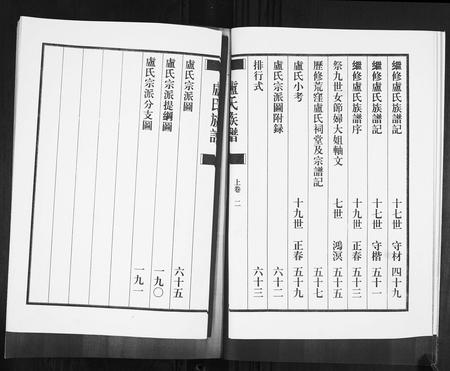 繼修盧氏族譜記 十七世 守材 四十九
繼修盧氏族譜記 十七世 守楷 五十一
繼修盧氏族譜序 十九世 正春 五十三
祭九世女節婦大姐軸文 七世 鴻溟 五十五
歷修荒窪盧氏祠堂及宗譜記 五十七
盧氏小考 十九世 正春 五十九
盧氏宗派圖附録 六十二
排行式 六十三
盧氏族譜 上卷 二
盧氏族譜
盧氏宗派圖 六十五
盧氏宗派提綱圖 一九〇
盧氏宗派分支圖 一九一